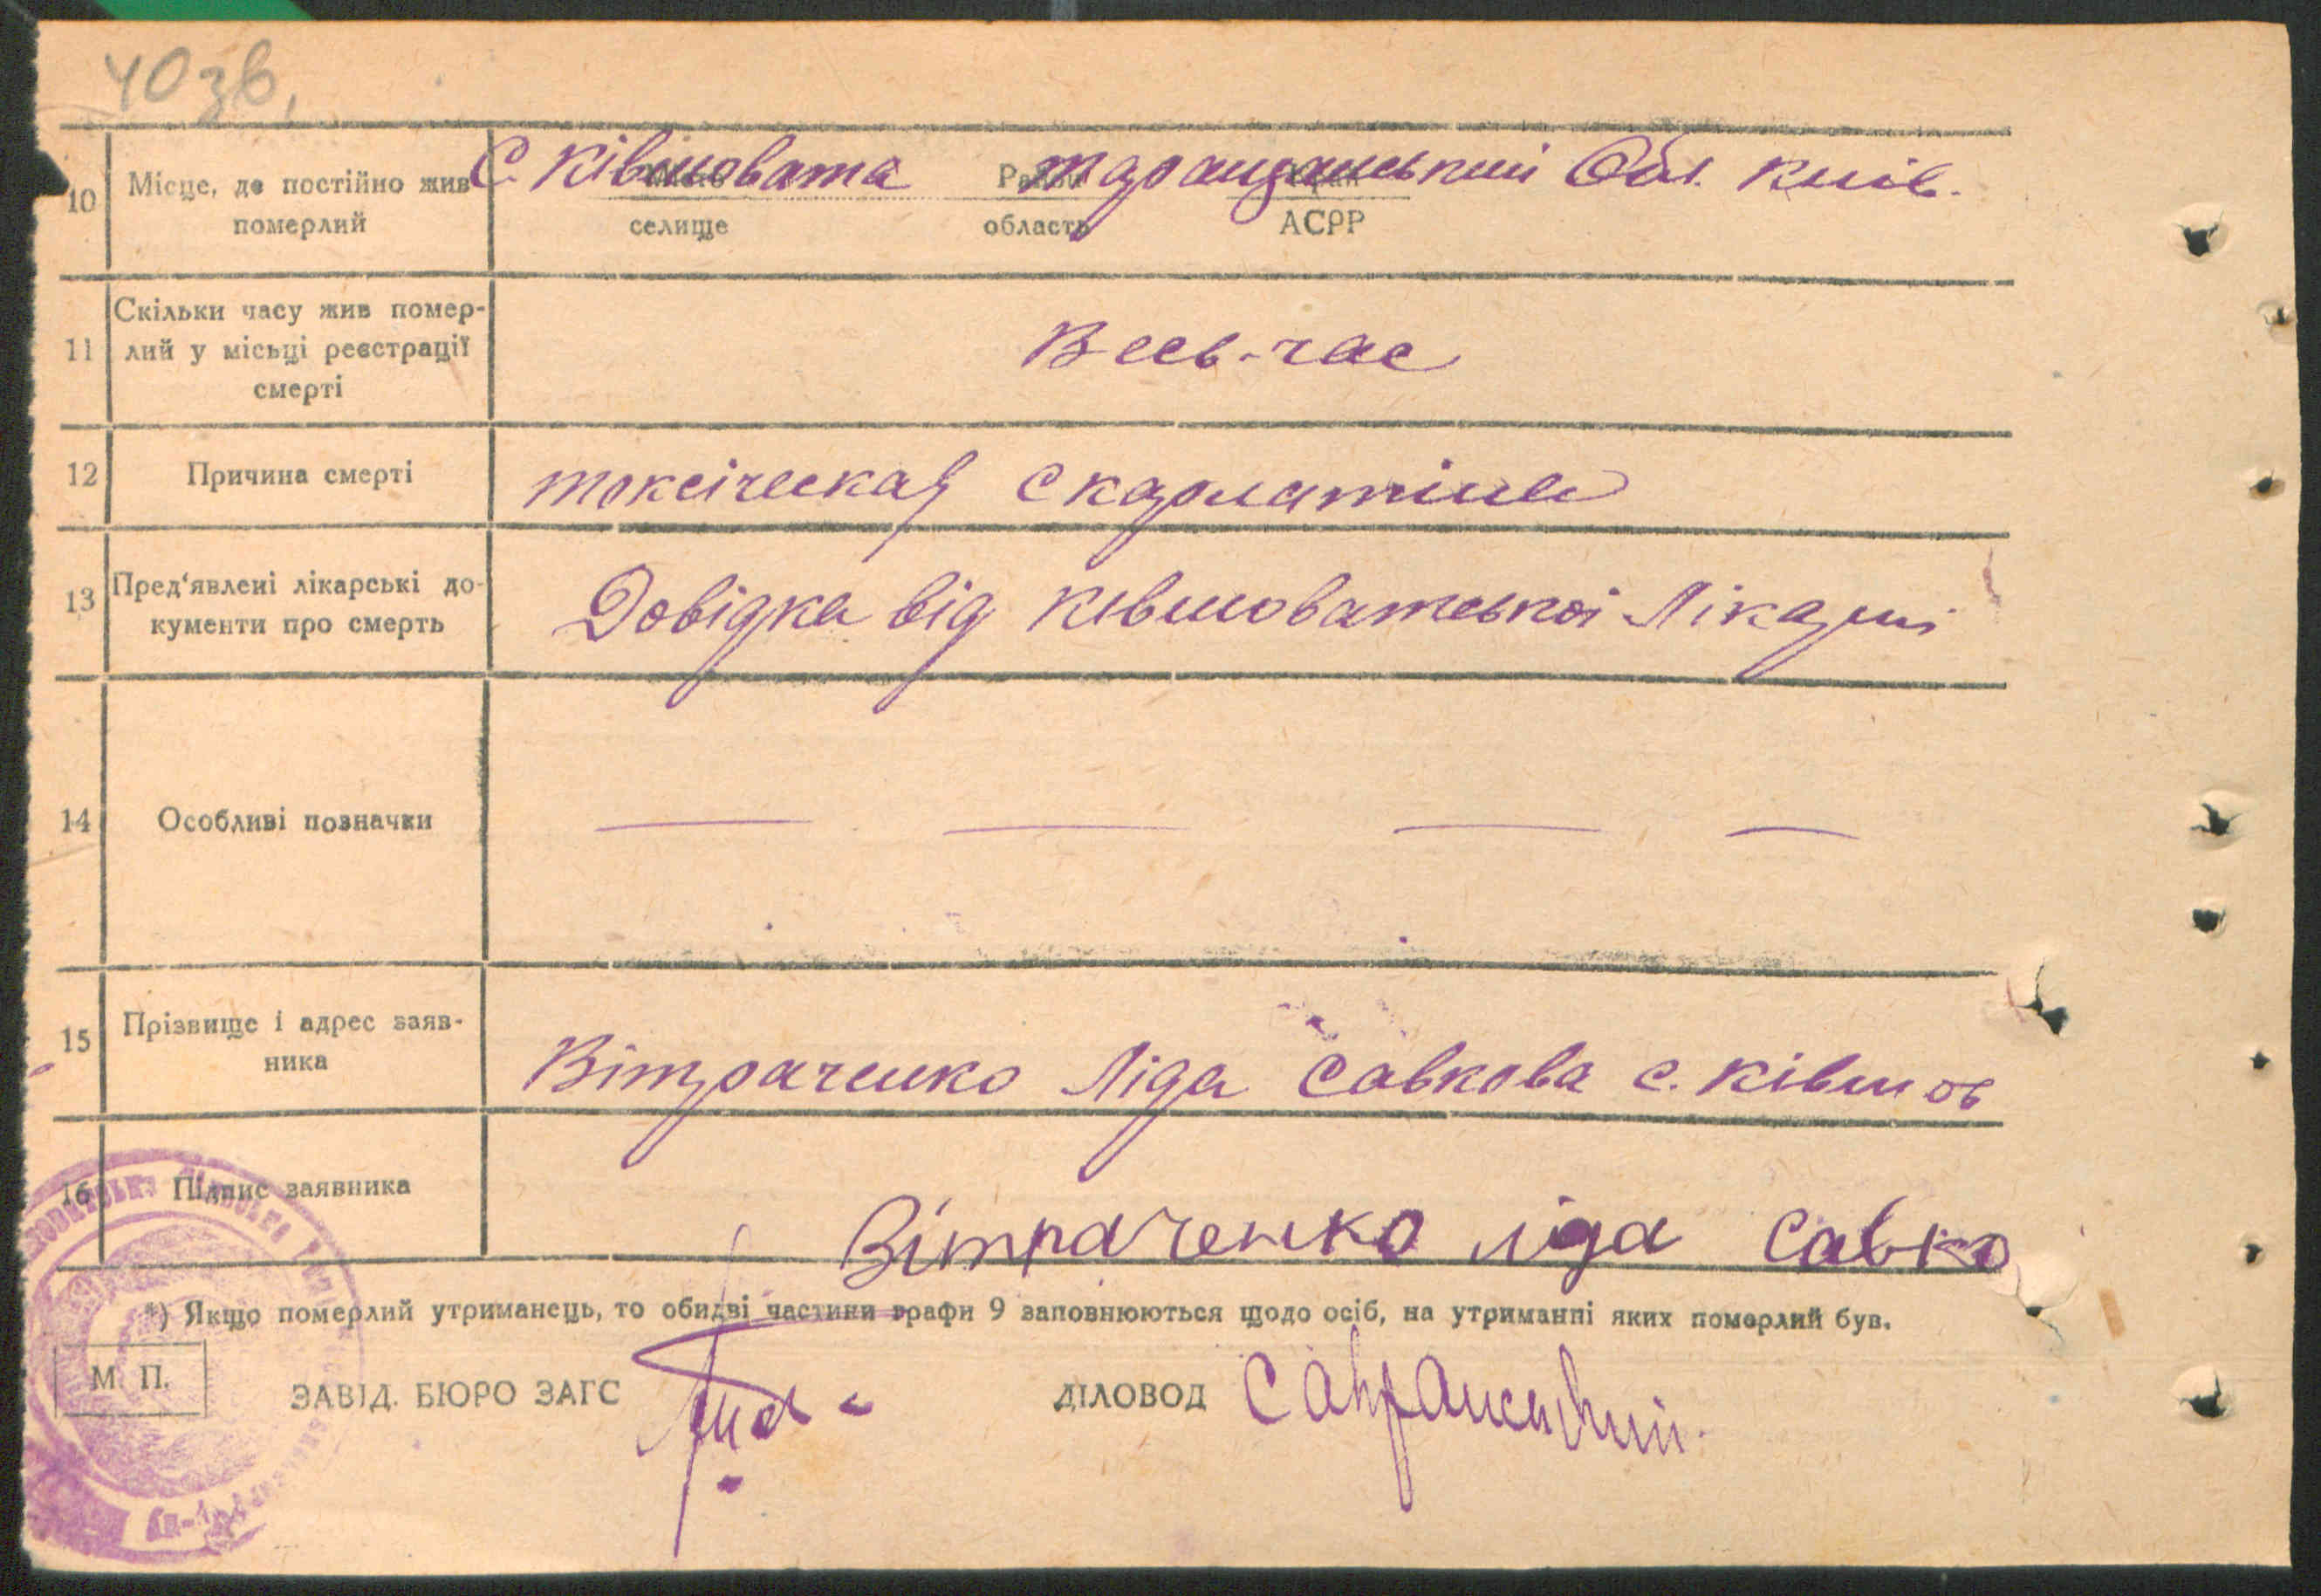 40 зв,
10 Місце, де постійно жив С. Ківшовата Таращанський Обл. Київ.
померлий селище область АСРР
Скільки часу жив помер-
11 лий у місьці реєстрації Весь-час
смерті
12 Причина смерті токсіческая скарлатіна
13 Пред'явлені лікарські до- Довідка від Ківшоватської Лікарні
кументи про смерть
14 Особливі позначки — — — —
15 Прізвище і адрес заяв- Вітраченко Ліда Савкова с. Ківшов
ника
16 Підпис заявника Вітраченко ліда Савко
*) Якщо померлий утриманець, то обидві частини графи 9 заповнюються щодо осіб, на утриманні яких померлий був.
М. П. ЗАВІД. БЮРО ЗАГС ДІЛОВОД